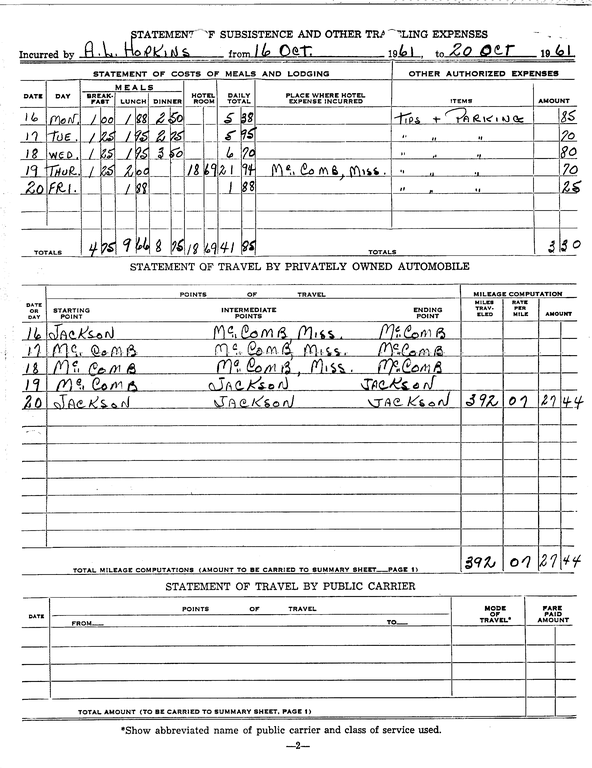 STATEMENT OF SUBSISTENCE AND OTHER TRAVELLING EXPENSES
Incurred by A.L. HOPKINS from 16 OCT. 1961, to 20 OCT 1961
STATEMENT OF COSTS OF MEALS AND LODGING OTHER AUTHORIZED EXPENSES
DATE DAY MEALS BREAK-FAST LUNCH DINNER HOTEL ROOM DAILY TOTAL PLACE WHERE HOTEL EXPENSE INCURRED ITEMS AMOUNT
16 MON. 1 00 1 88 2 50 5 38 TIPS + PARKING 85
17 TUE. 1 25 1 95 2 75 5 95 " " " 70
18 WED. 1 25 1 95 3 50 6 70 " " " 80
19 THUR. 1 25 2 00 18 69 21 94 Mc. COMB, MISS. " " " 70
20 FRI. 1 88 1 88 " " " 25
TOTALS 4 75 9 66 8 75 18 69 41 85 TOTALS 3 30
STATEMENT OF TRAVEL BY PRIVATELY OWNED AUTOMOBILE
POINTS OF TRAVEL MILEAGE COMPUTATION
DATE OR DAY STARTING POINT INTERMEDIATE POINTS ENDING POINT MILES TRAV-ELED RATE PER MILE AMOUNT
16 JACKSON Mc. COMB MISS. Mc. COMB
17 Mc. COMB Mc. COMB, MISS. Mc. COMB
18 Mc. COMB Mc. COMB, MISS. Mc. COMB
19 Mc. COMB JACKSON JACKSON
20 JACKSON JACKSON JACKSON 392 07 27 44
TOTAL MILEAGE COMPUTATIONS (AMOUNT TO BE CARRIED TO SUMMARY SHEET—PAGE 1) 392 07 27 44
STATEMENT OF TRAVEL BY PUBLIC CARRIER
DATE POINTS OF TRAVEL MODE OF TRAVEL* FARE PAID AMOUNT
FROM— TO—
TOTAL AMOUNT (TO BE CARRIED TO SUMMARY SHEET, PAGE 1)
*Show abbreviated name of public carrier and class of service used.
—2—